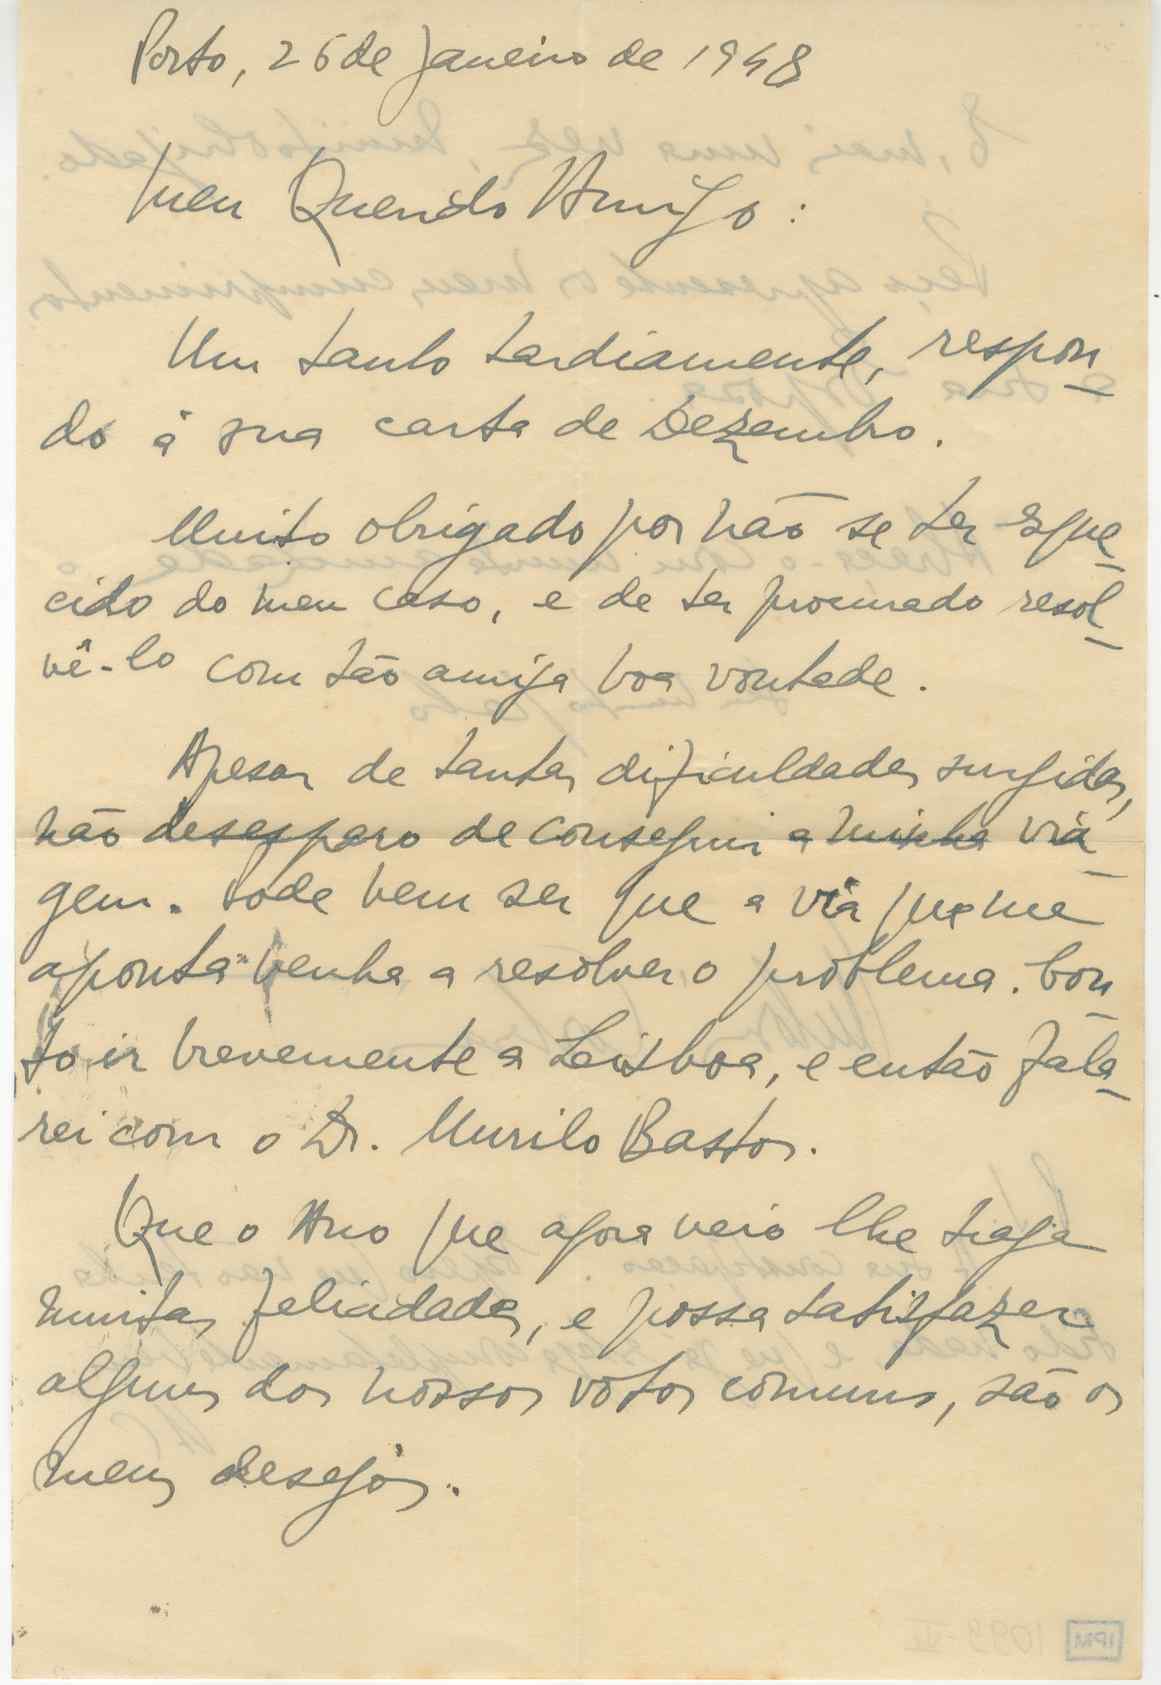 Porto, 26 de Janeiro de 1948
Meu Querido Amigo:
Um tanto tardiamente, respon-
do à sua carta de Dezembro.
Muito obrigado por não se ter esque-
cido do meu caso, e de ter procurado resol-
vê-lo com tão amiga boa vontade.
Apesar de tantas dificuldades surgidas,
não desespero de conseguir a minha via-
gem. Pode bem ser que a via que me
aponta venha a resolver o problema. Con-
to ir brevemente a Leisboa, e então fala-
rei com o Dr. Murilo Bastos.
Que o Ano que agora veio lhe traga
muitas felicidades, e possa satisfazer
alguns dos nossos votos comuns, são os
meus desejos.
IPM